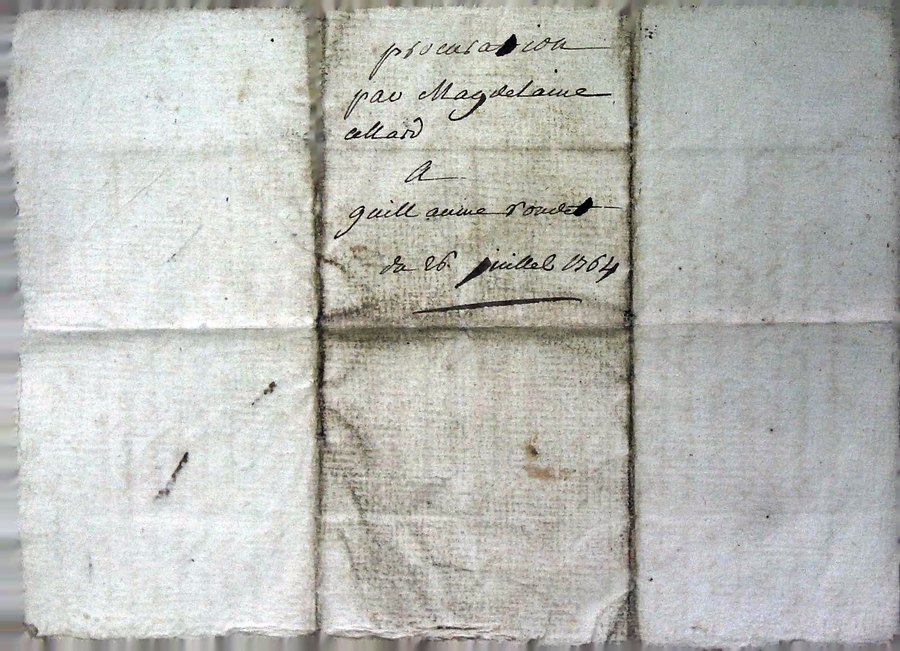 procuration
par Magdelaine
cellard
A
guillaume rondet
du 26 juillet 1764